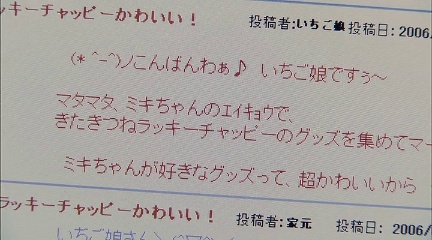 ッキーチャッピーかわいい！ 投稿者:いちご娘 投稿日: 2006/
(*＾-＾)ノこんばんわぁ♪ いちご娘ですぅ～
マタマタ、ミキちゃんのエイキョウで、
きたきつねラッキーチャッピーのグッズを集めてマー
ミキちゃんが好きなグッズって、超かわいいから
ラッキーチャッピーかわいい！ 投稿者:家元 投稿日: 2006/0
いちご娘さん